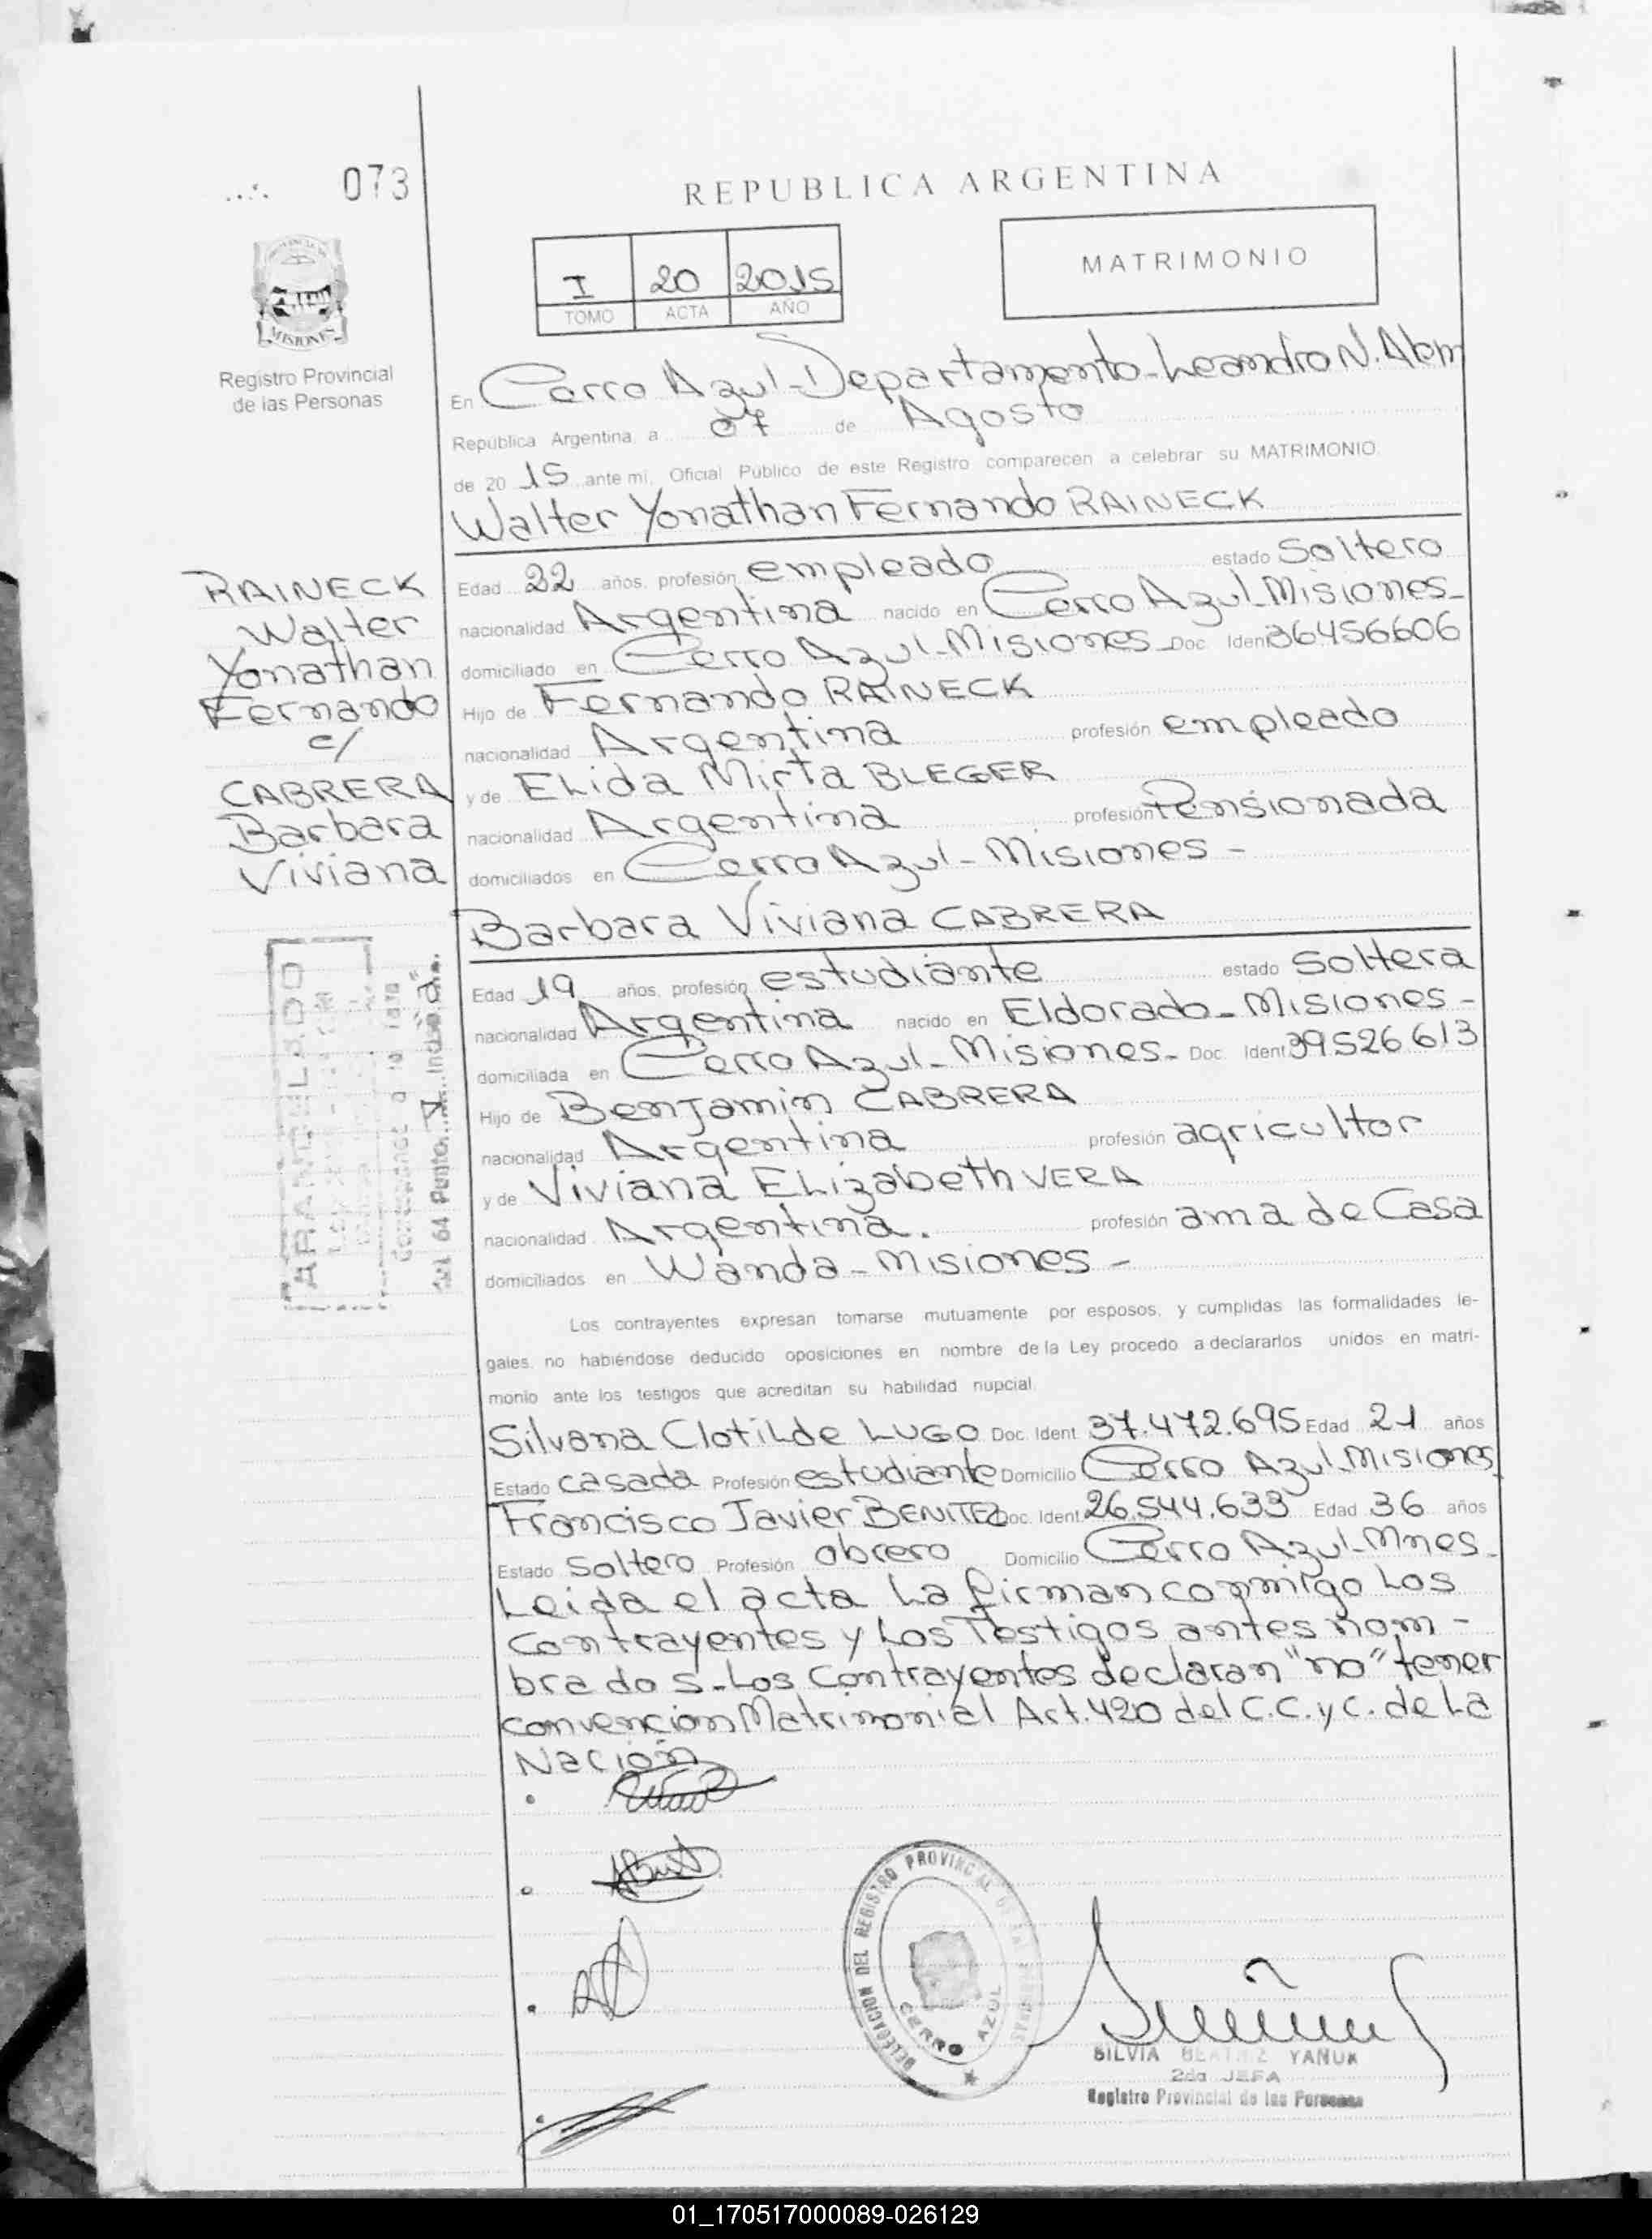 073
REPUBLICA ARGENTINA
I 20 2015
TOMO ACTA AÑO
MATRIMONIO
MISIONES
Registro Provincial
de las Personas
En Cerro Azul - Departamento - Leandro N. Alem
República Argentina a 07 de Agosto
de 2015 ante mi, Oficial Público de este Registro comparecen a celebrar su MATRIMONIO
Walter Yonathan Fernando RAINECK
RAINECK
Walter
Yonathan
Fernando
c/
CABRERA
Barbara
Viviana
Edad 22 años, profesión empleado estado Soltero
nacionalidad Argentina nacido en Cerro Azul - Misiones -
domiciliado en Cerro Azul - Misiones - Doc Iden 36456606
Hijo de Fernando RAINECK
nacionalidad Argentina profesión empleado
y de Elida Mirta BLEGER
nacionalidad Argentina profesión Pensionada
domiciliados en Cerro Azul - Misiones -
Barbara Viviana CABRERA
Edad 19 años, profesión estudiante estado Soltera
nacionalidad Argentina nacido en Eldorado - Misiones -
domiciliada en Cerro Azul - Misiones - Doc. Ident 39.526.613
Hijo de Benjamin CABRERA
nacionalidad Argentina profesión agricultor
y de Viviana Elizabeth VERA
nacionalidad Argentina. profesión ama de Casa
domiciliados en Wanda - Misiones -
ARANCELADO
64 Punto V Inciso a
Los contrayentes expresan tomarse mutuamente por esposos, y cumplidas las formalidades le-
gales, no habiéndose deducido oposiciones en nombre de la Ley procedo a declararlos unidos en matri-
monio ante los testigos que acreditan su habilidad nupcial
Silvana Clotilde LUGO Doc. Ident 37.472.695 Edad 21 años
Estado casada Profesión estudiante Domicilio Cerro Azul - Misiones
Francisco Javier BENITEZ Doc. Ident 26.544.633 Edad 36 años
Estado Soltero Profesión obrero Domicilio Cerro Azul - Mnes -
Leida el acta la firman conmigo los
contrayentes y los Testigos antes nom -
brados - Los contrayentes declaran "no" tener
convencion Matrimonial Art. 420 del C.C. y C. de La
Nación
DELEGACION DEL REGISTRO PROVINCIAL DE LAS PERSONAS
CERRO AZUL
SILVIA BEATRIZ YAÑUK
2da JEFA
Registro Provincial de las Personas
01_170517000089-026129